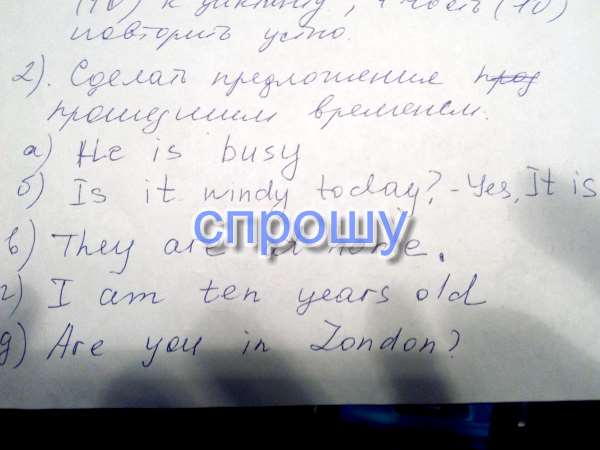 (10) к диктанту, 4 часть (10)
повторить устно.
2). Сделать предложения прош
прошедшим временем.
а) He is busy
б) Is it windy today? - Yes, It is
спрошу
в) They are at home.
г) I am ten years old
д) Are you in London?